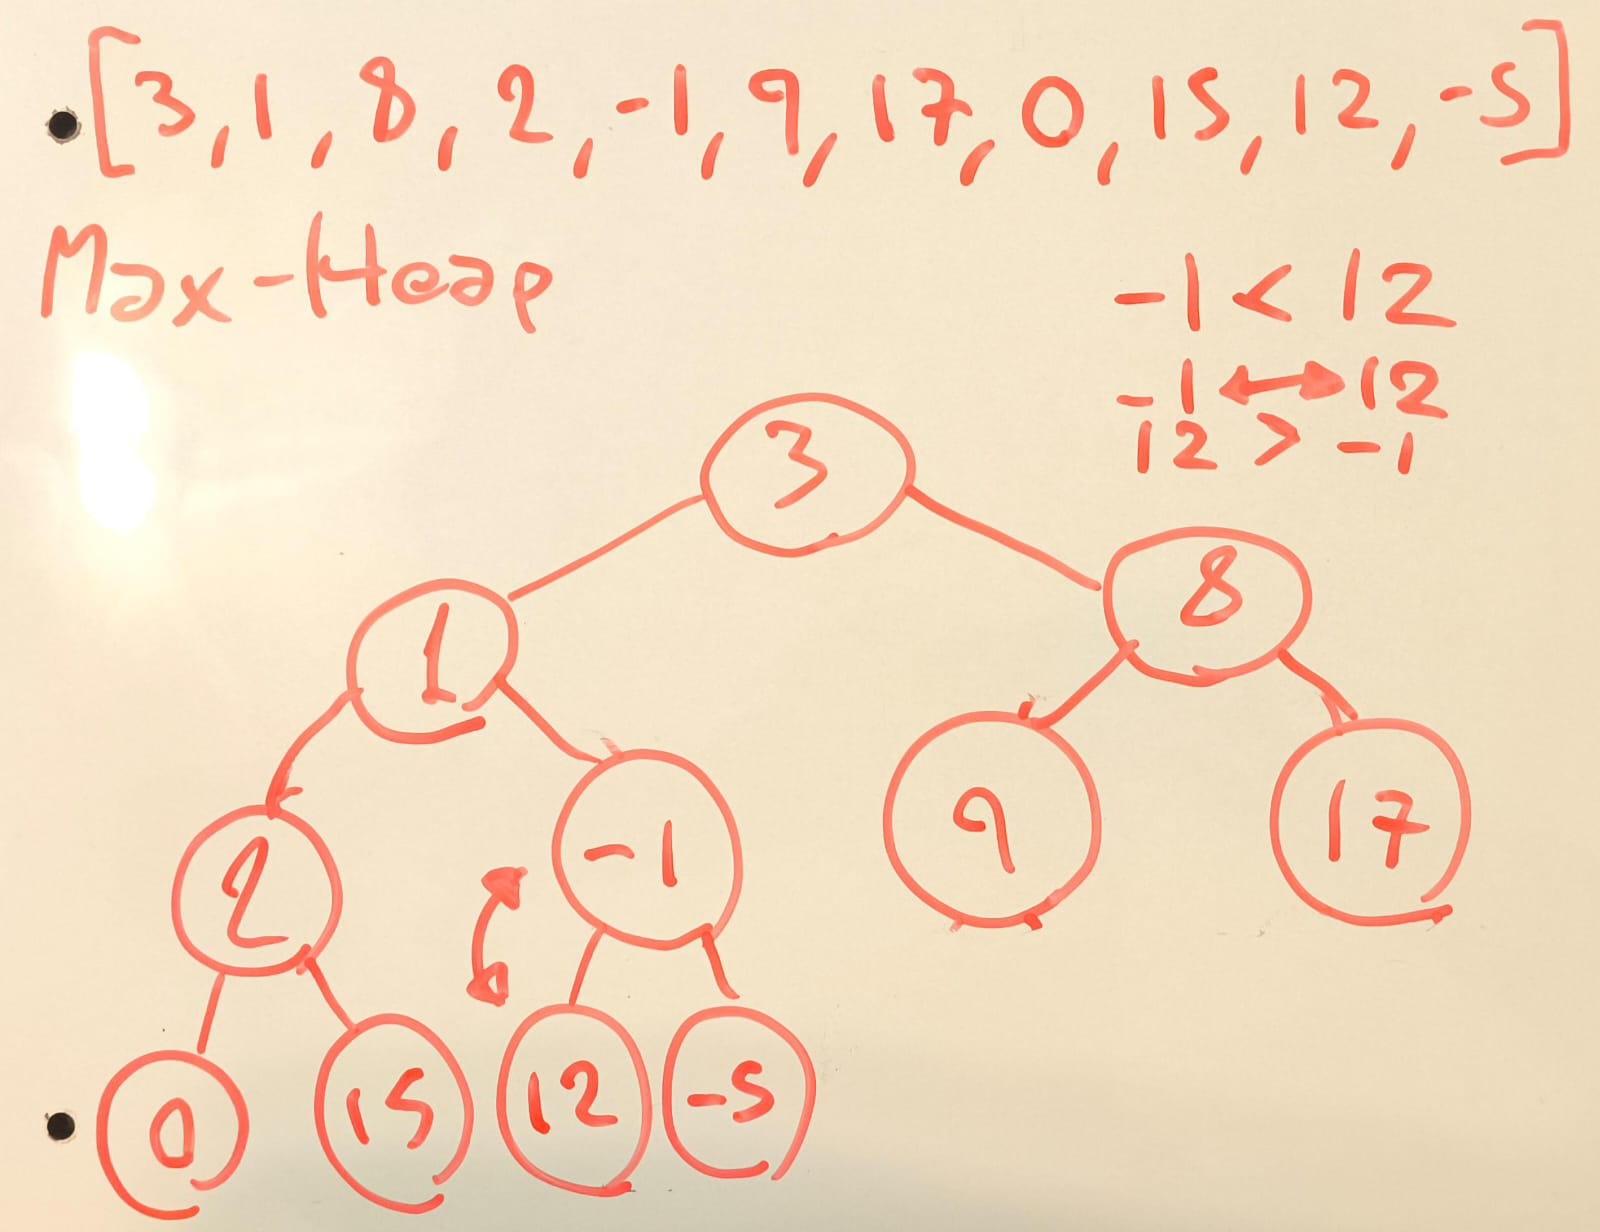 [3, 1, 8, 2, -1, 9, 17, 0, 15, 12, -5]
Max-Heap
-1 < 12
-1 ↔ 12
12 > -1
3
1
8
2
-1
9
17
0
15
12
-5